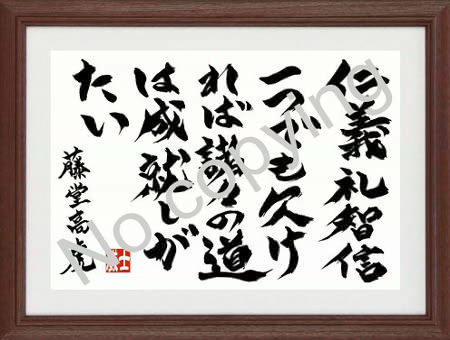 仁義礼智信
一つでも欠け
れば諸々の道
は成就しが
たい
藤堂高虎
No copying